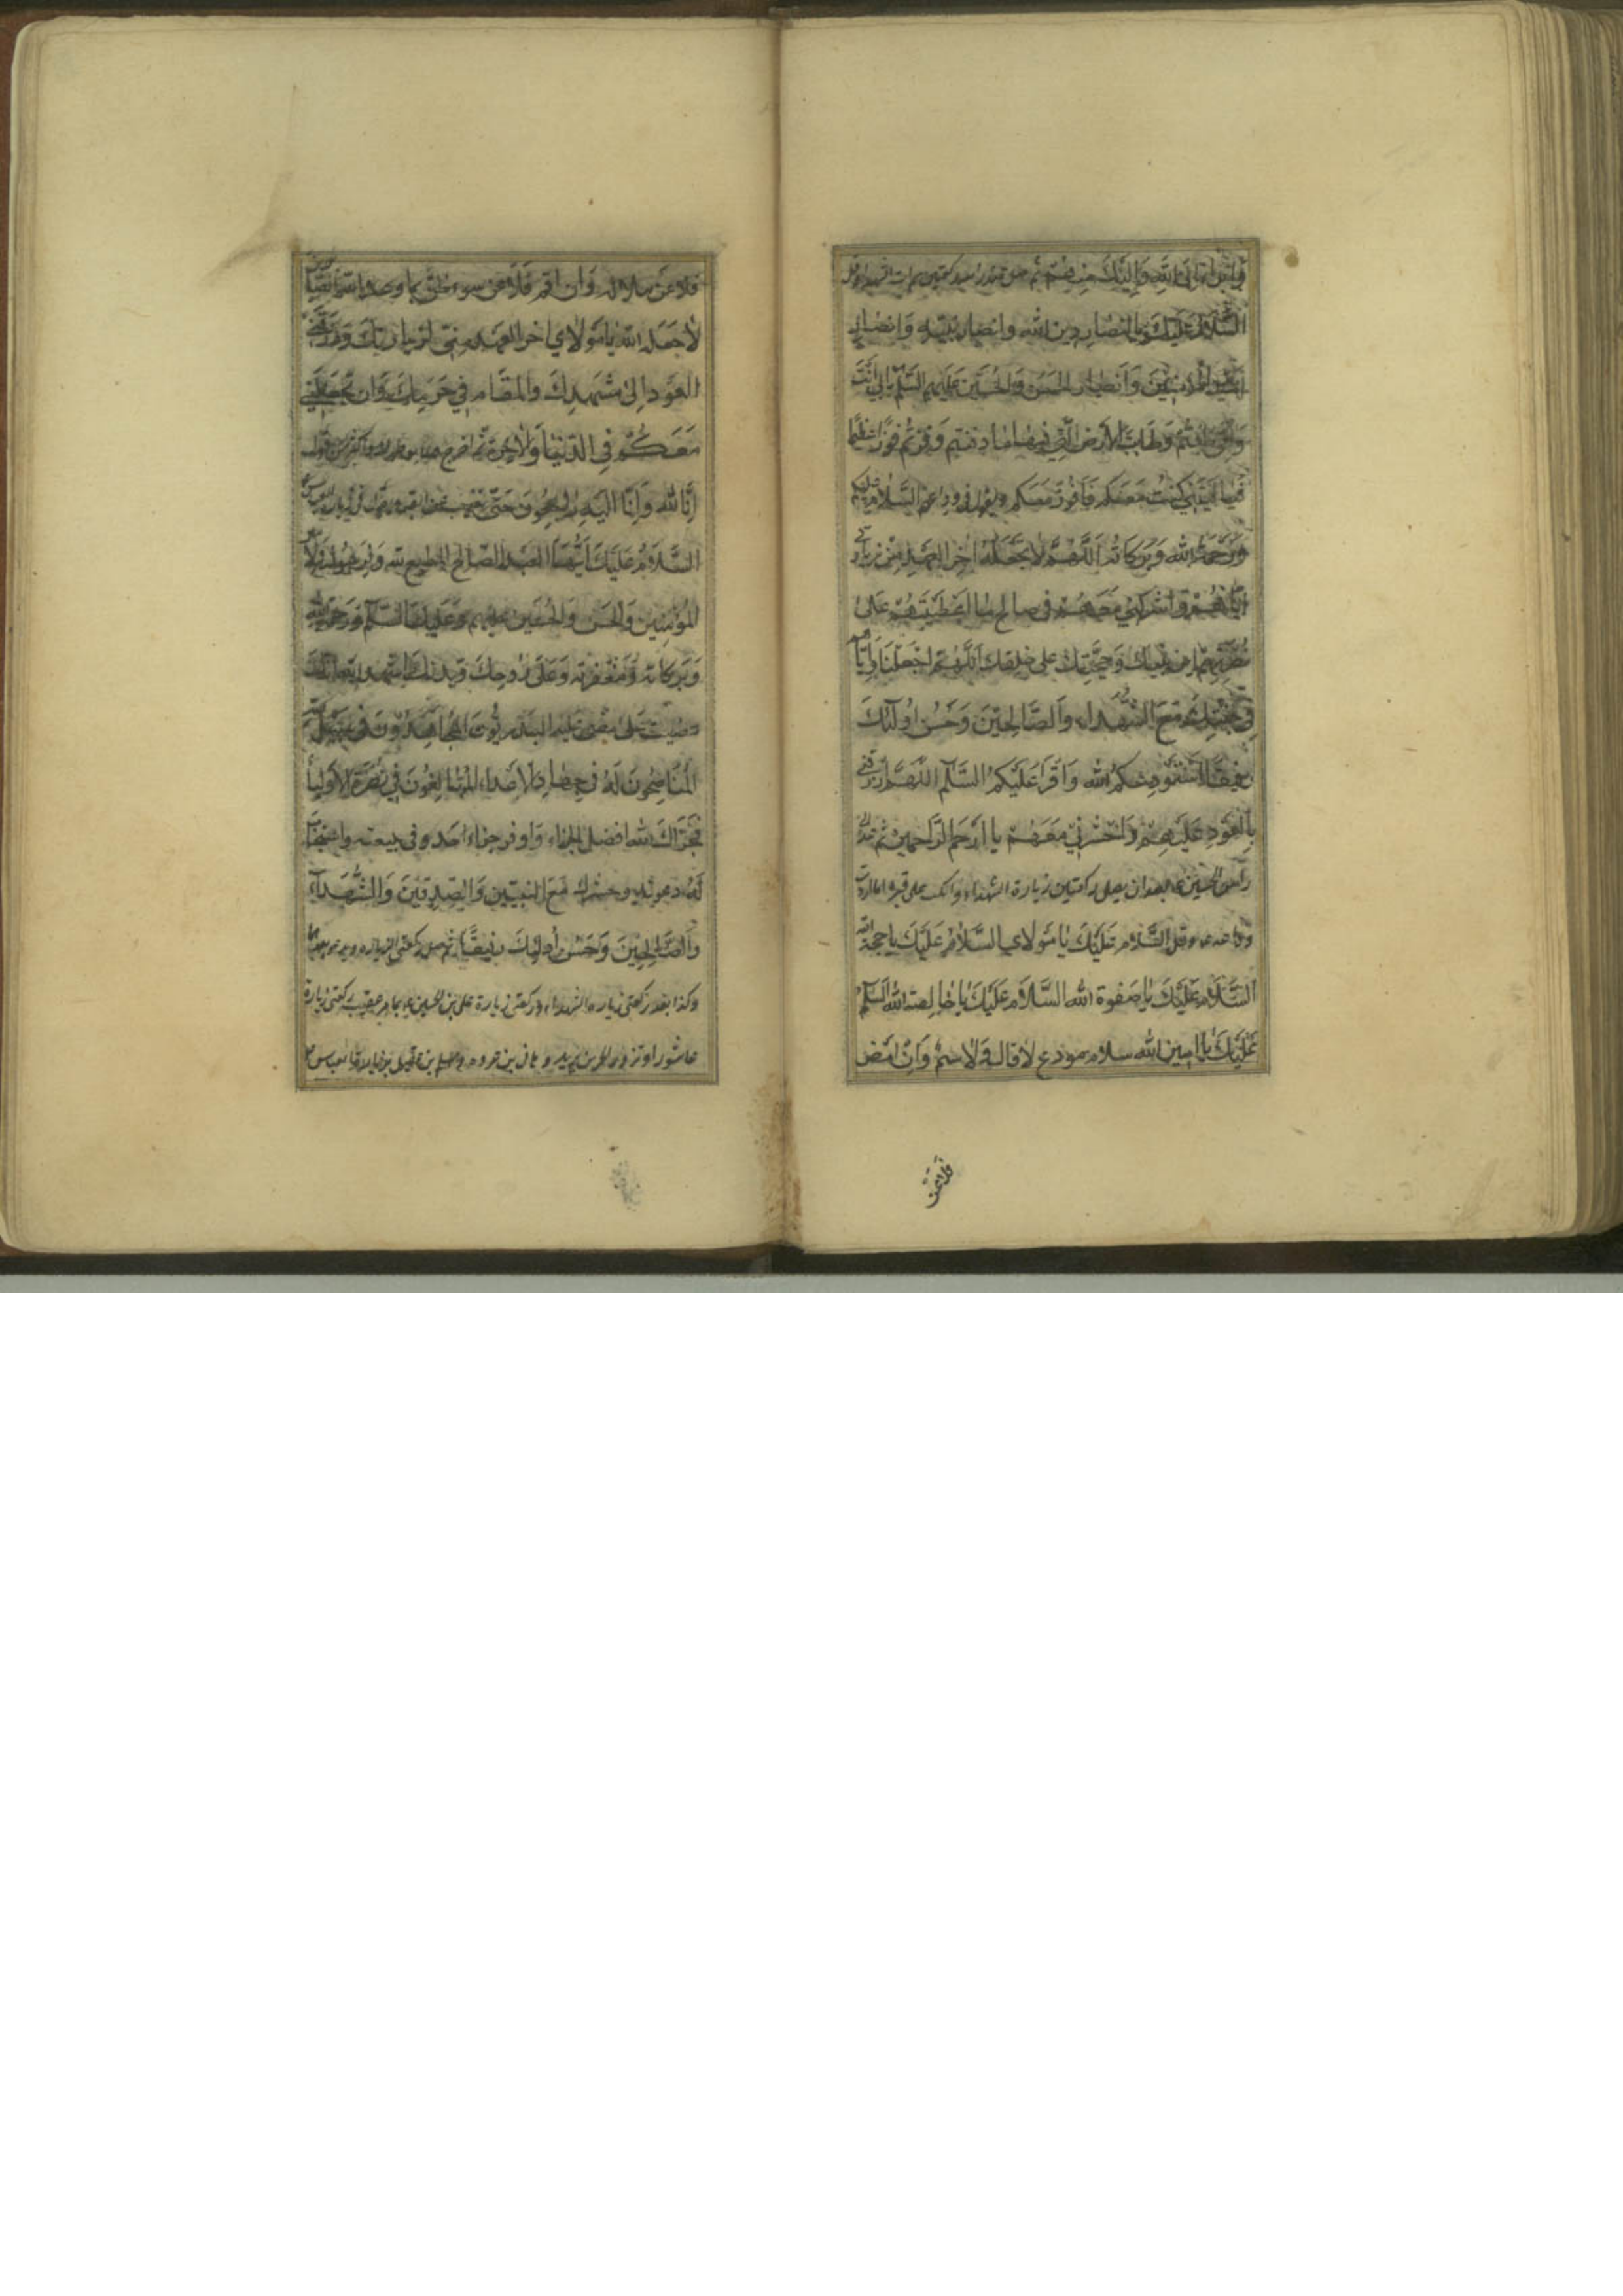 وابرأ الى الله واليك منهم ثم صل عند رأسه ركعتين
السلام عليكم يا انصار دين الله وانصار نبيه وانصار
امير المؤمنين وانصار الحسن والحسين عليهم السلم بابي انتم
وامي طبتم وطابت الارض التي فيها دفنتم وفزتم فوزا عظيما
فيا ليتني كنت معكم فافوز معكم السلام عليكم
ورحمة الله وبركاته اللهم لا تجعله اخر العهد من زيارتي
اياهم واشركني معهم في صالح ما اعطيتهم على
نصرتهم ابن نبيك وحجتك على خلقك اللهم اجعلنا واياهم
في جنتك مع الشهداء والصالحين وحسن اولئك
رفيقا استودعكم الله واقرأ عليكم السلم اللهم ارزقني
العود عليهم واحشرني معهم يا ارحم الراحمين ثم
رأس الحسين بعد ان يصلي ركعتين زيارة الشهداء وانكب على قبره
وقل السلام عليك يا مولاي السلام عليك يا حجة الله
السلام عليك يا صفوة الله السلام عليك يا خالصة الله السلم
عليك يا امين الله سلام مودع لا قال ولا سئم وان امض
فلا عن
فلا عن ملالة وان اقم فلا عن سوء ظن بما وعد الله الصابرين
لا جعله الله يا مولاي اخر العهد مني لزيارتك ورزقني
العود الى مشهدك والمقام في حرمك وان يجعلني
معكم في الدنيا والاخرة ثم اخرج
انا لله وانا اليه راجعون حتى تغيب عن القبر
السلام عليك ايها العبد الصالح المطيع لله ولرسوله ولامير
المؤمنين والحسن والحسين عليهم وعليك السلم ورحمة الله
وبركاته ومغفرته وعلى روحك وبدنك اشهد
مضيت على ما مضى عليه البدريون المجاهدون في سبيل الله
المناصحون له في جهاد الاعداء المبالغون في نصرة الاولياء
فجزاك الله افضل الجزاء واوفر جزاء احد وفى ببيعته واستجاب
له دعوته وحشرك مع النبيين والصديقين والشهداء
والصالحين وحسن اولئك رفيقا ثم صل ركعتي الزيارة
وكذا بعد ركعتي زيارة الشهداء وركعتي زيارة علي بن الحسين بما مر عقيب ركعتي زيارة
عاشورا وتزور الحر بن يزيد وهاني بن عروه ومسلم بن عقيل